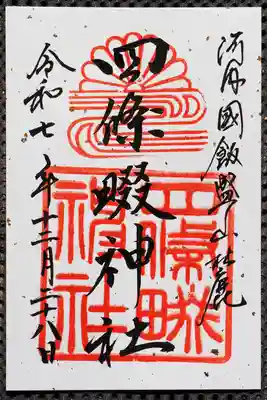 河内國飯盛山麓
四條畷神社
四條畷
神社
令和七年十二月二十八日